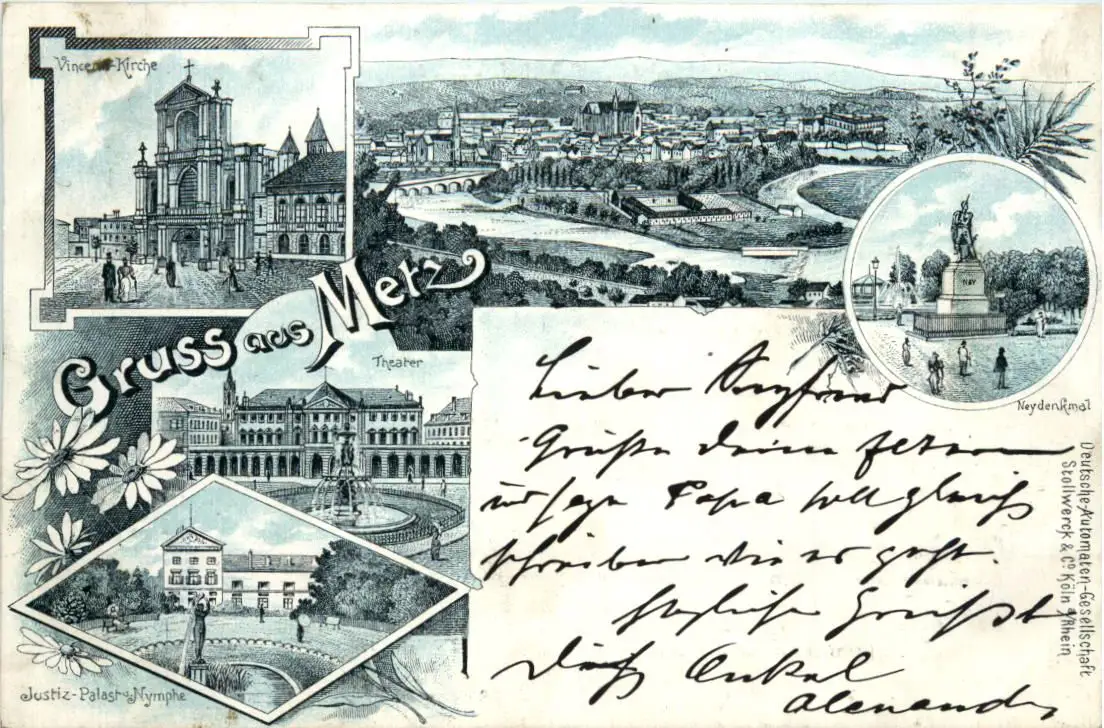 Vincenz-Kirche
Gruss aus Metz
NEY
Neydenkmal
Theater
Justiz-Palast u. Nymphe
Lieber
Grüße deine Eltern
und sage Papa soll gleich
schreiben wie es geht.
Herzliche Grüße
Dich Onkel
Alexander
Deutsche-Automaten-Gesellschaft
Stollwerck & Co. Köln a/Rhein.